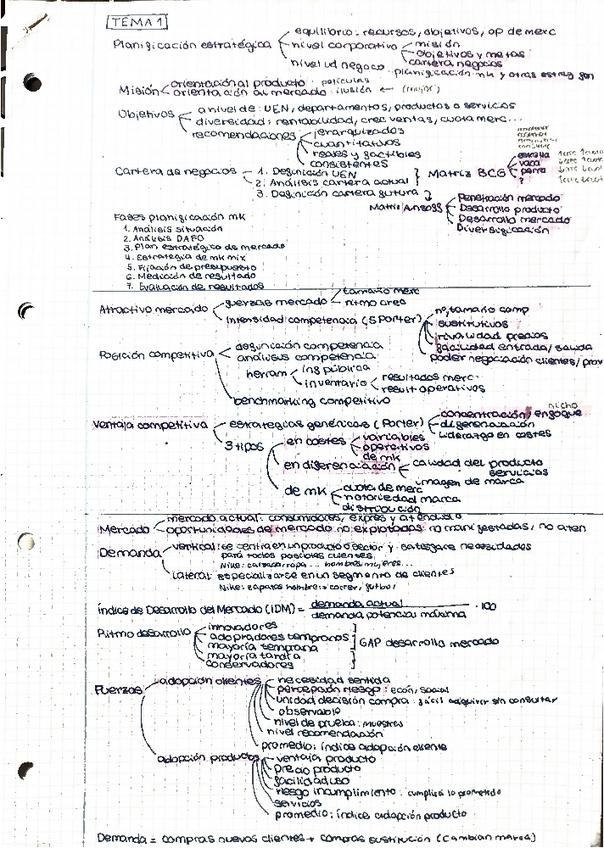 TEMA 1
equilibrio: recursos, objetivos, op de merc
Planificación estratégica
nivel corporativo
misión
objetivos y metas
cartera negocios
nivel ud negocio
planificación mk y otras estrag gen
Misión
orientación al producto · películas
orientación al mercado · ilusión ← (mejor)
Objetivos
a nivel de: UEN, departamentos, productos o servicios
diversidad: rentabilidad, crec ventas, cuota merc...
recomendaciones
jerarquizados
cuantitativos
reales y factibles
consistentes
Cartera de negocios
1. Definición UEN
2. Análisis cartera actual
Matriz BCG
estrella
vaca
perro
?
3. Definición cartera futura
Matriz Ansoff
Penetración mercado
Desarrollo producto
Desarrollo mercado
Diversificación
Fases planificación mk
1. Análisis situación
2. Análisis DAFO
3. Plan estratégico de mercado
4. Estrategia de mk mix
5. Fijación de presupuesto
6. Medición de resultado
7. Evaluación de resultados
Atractivo mercado
fuerzas mercado
tamaño merc
ritmo crec
intensidad competencia (5 Porter)
nº, tamaño comp
sustitutivos
rivalidad precios
facilidad entrada/salida
poder negociación clientes/prov
Posición competitiva
definición competencia
análisis competencia
herram
ins pública
inventario
resultados merc
result operativos
benchmarking competitivo
Ventaja competitiva
estrategias genéricas (Porter)
nicho
concentración/enfoque
diferenciación
liderazgo en costes
3 tipos
en costes
variables
operativos
de mk
en diferenciación
calidad del producto
servicios
imagen de marca
de mk
cuota de merc
notoriedad marca
distribución
Mercado
mercado actual: consumidores, expres y atendida
oportunidades de mercado no explotadas: no manifestadas, no aten
Demanda
vertical: se centra en un producto o sector y satisface necesidades
para todos posibles clientes.
Nike: calzado, ropa... hombres, mujeres...
lateral: especializarse en un segmento de clientes
Nike: zapatos hombre: correr, futbol
Índice de Desarrollo del Mercado (IDM) = demanda actual / demanda potencial máxima · 100
Ritmo desarrollo
innovadores
adoptadores tempranos
mayoría temprana
mayoría tardía
conservadores
GAP desarrollo mercado
Fuerzas
adopción clientes
necesidad sentida
percepción riesgo: econ, social
unidad decisión compra: fácil adquirir sin consultar
observable
nivel de prueba: muestras
nivel recomendación
promedio: índice adopción cliente
adopción productos
ventaja producto
precio producto
facilidad uso
riesgo incumplimiento: cumplir lo prometido
servicios
promedio: índice adopción producto
Demanda = compras nuevos clientes + compras sustitución (cambian marca)